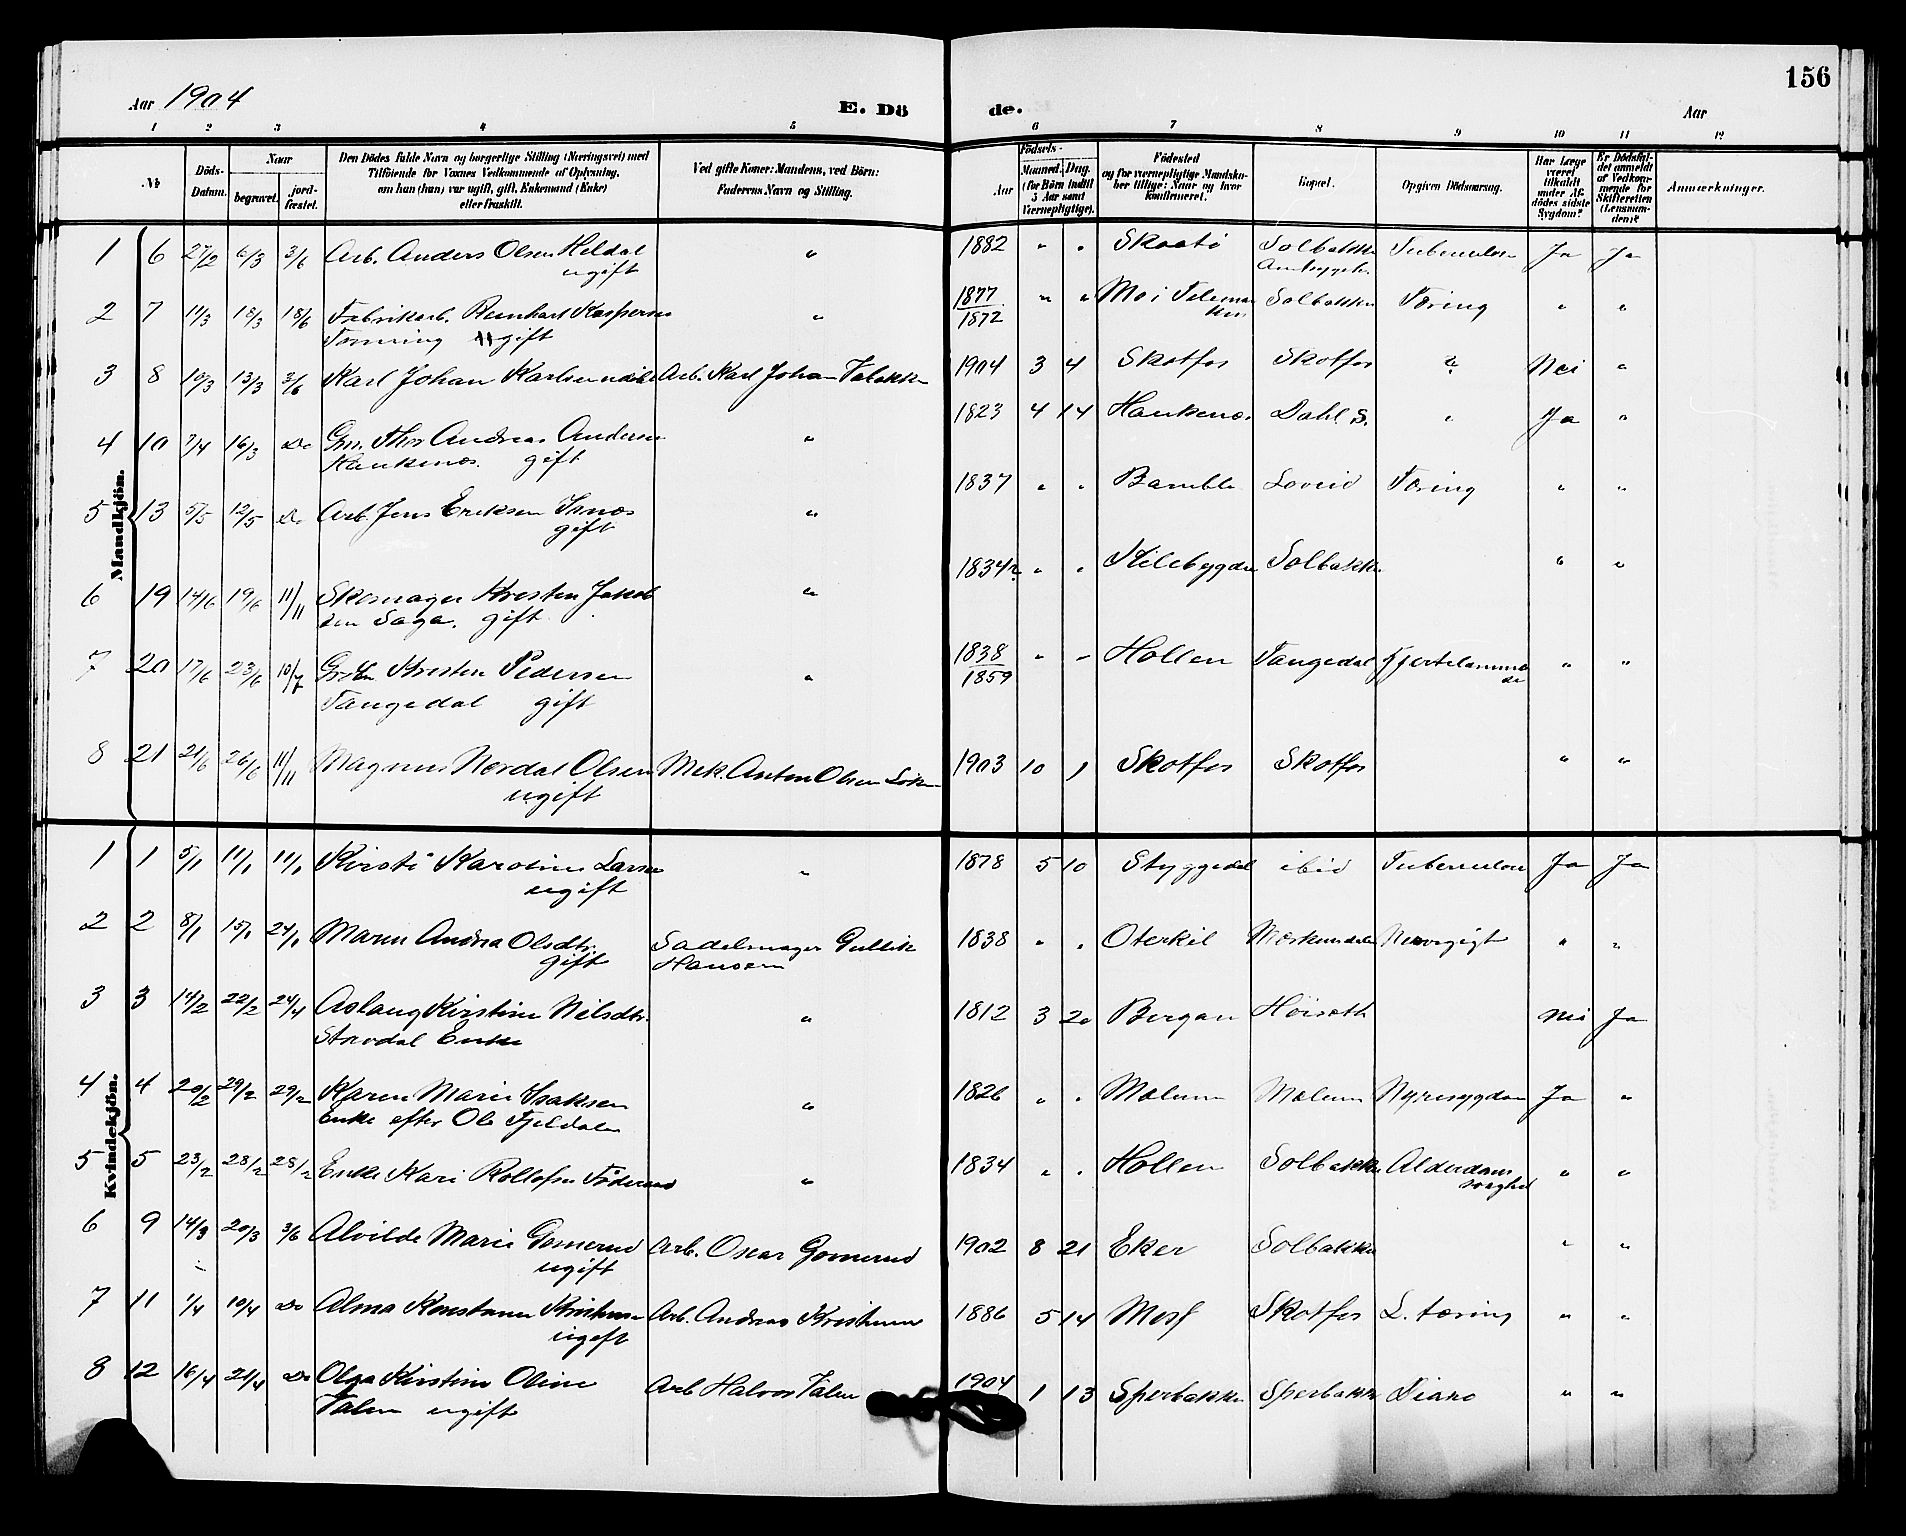 156
Aar 1904
E. Dö
de.
Aar
1 2 3 4 5 6 7 8 9 10 11 12
No
Döds-Datum.
Naar
begravet.
jordfæstet.
Den Dödes fulde Navn og borgerlige Stilling (Næringsvei) med Tilföiende for Voxnes Vedkommende af Oplysning, om han (hun) var ugift, gift, Enkemand (Enke) eller fraskilt.
Ved gifte Koner: Mandens, ved Börn: Faderens Navn og Stilling.
Födsels-
Aar
Maaned. Dag.
(for Börn indtil 5 Aar samt Værnepligtige).
Födested
og for værnepligtige Mandskaber tillige: Naar og hvor konfirmeret.
Bopæl.
Opgiven Dödsaarsag.
Har Læge været tilkaldt under Afdödes sidste Sygdom?
Er Dödsfaldet anmeldt af Vedkommende for Skifteretten (Lensmanden)?
Anmærkninger.
Mandkjön.
1 6 27/2 6/3 3/6 Arb. Anders Olsen Heldal " 1882 " " Skaatö Solbakken Tuberculose Ja Ja
ugift
2 7 11/3 18/3 18/6 Fabrikarb. Reinhart Kaspersen " 1877/1872 " " Mo i Telemarken Solbakken Tæring " "
gift
3 8 10/3 13/3 3/6 Karl Johan Karlsen Arb. Karl Johan 1904 3 4 Skotfos Skotfos Nei "
4 10 7/4 16/3 Do Andreas Andersen " 1823 4 14 Haukenæs Dahl S. " Ja "
Haukenæs. gift
5 13 5/5 12/5 Do Arb. Jens Eriksen " 1837 " " Bamble Löveid Tæring " "
gift
6 19 14/6 19/6 11/11 Skomager Kresten Jakobsen Saga. gift " 1834 " " Kilebygden Solbakken " "
7 20 17/6 23/6 10/7 Kresten Pedersen " 1838/1859 " " Hollen Tangedal Hjertelammelse " "
Tangedal gift
8 21 21/6 26/6 11/11 Magnus Nordal Olsen Mek. Anton Olsen 1903 10 1 Skotfos Skotfos " "
ugift
Kvindekjön.
1 1 5/1 11/1 11/1 Kirsti Karoline Larsen " 1878 5 10 Styggedal ibid Tuberculose Ja Ja
ugift
2 2 8/1 15/1 24/1 Maren Andrea Olsdtr. Sadelmager Gullik 1838 " " Oterkil Nervegigt " "
gift Hansen
3 3 14/2 22/2 24/4 Aslaug Kirstine Nilsdtr. " 1812 3 20 Bergan Höiseth Nei Ja
Stordal Enke
4 4 20/2 29/2 29/2 Karen Marie Isaksen " 1826 " " Mælum Mælum Nyresygdom Ja "
Enke efter Ole Fjeldalen
5 5 23/2 28/2 28/2 Enke Kari Rollefsen " 1834 " " Hollen Solbakken Alderdomssvaghed " "
6 9 14/3 20/3 3/6 Alvilde Marie Gomerud Arb. Oscar Gomerud 1902 8 21 Eker Solbakken " "
ugift
7 11 1/4 10/4 Do Alma Konstanse Kristensen Arb. Andreas Kristensen 1886 5 14 Moss Skotfos L. tæring " "
ugift
8 12 16/4 21/4 Do Olga Kirstine Oline Arb Halvor Talen 1904 1 13 Sperbakken Sperbakken Diare " "
Talen ugift